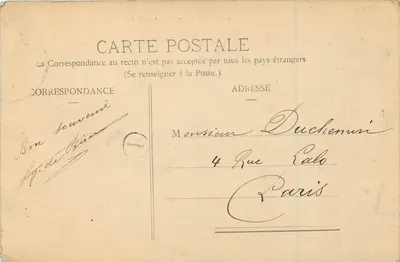 CARTE POSTALE
La Correspondance au recto n'est pas acceptée par tous les pays étrangers
(Se renseigner à la Poste.)
CORRESPONDANCE
ADRESSE
Bon souvenir
Monsieur Duchemin
4 Rue Lalo
Paris